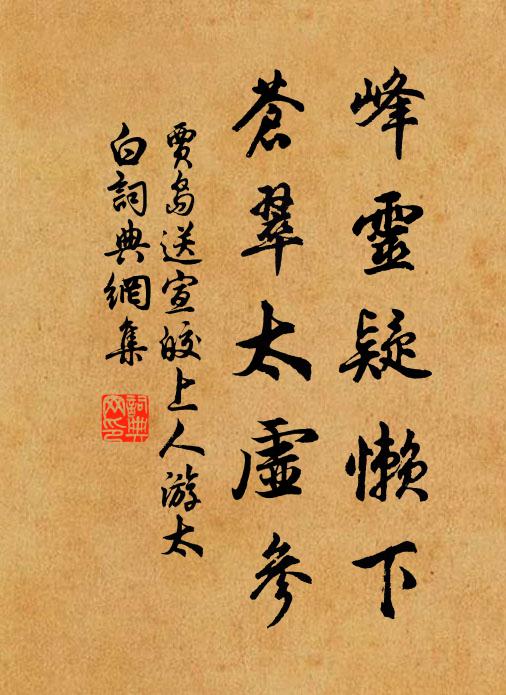 峰靈疑懶下
蒼翠太虛參
賈島送宣皎上人游太
白詞典網集
詞典
网印